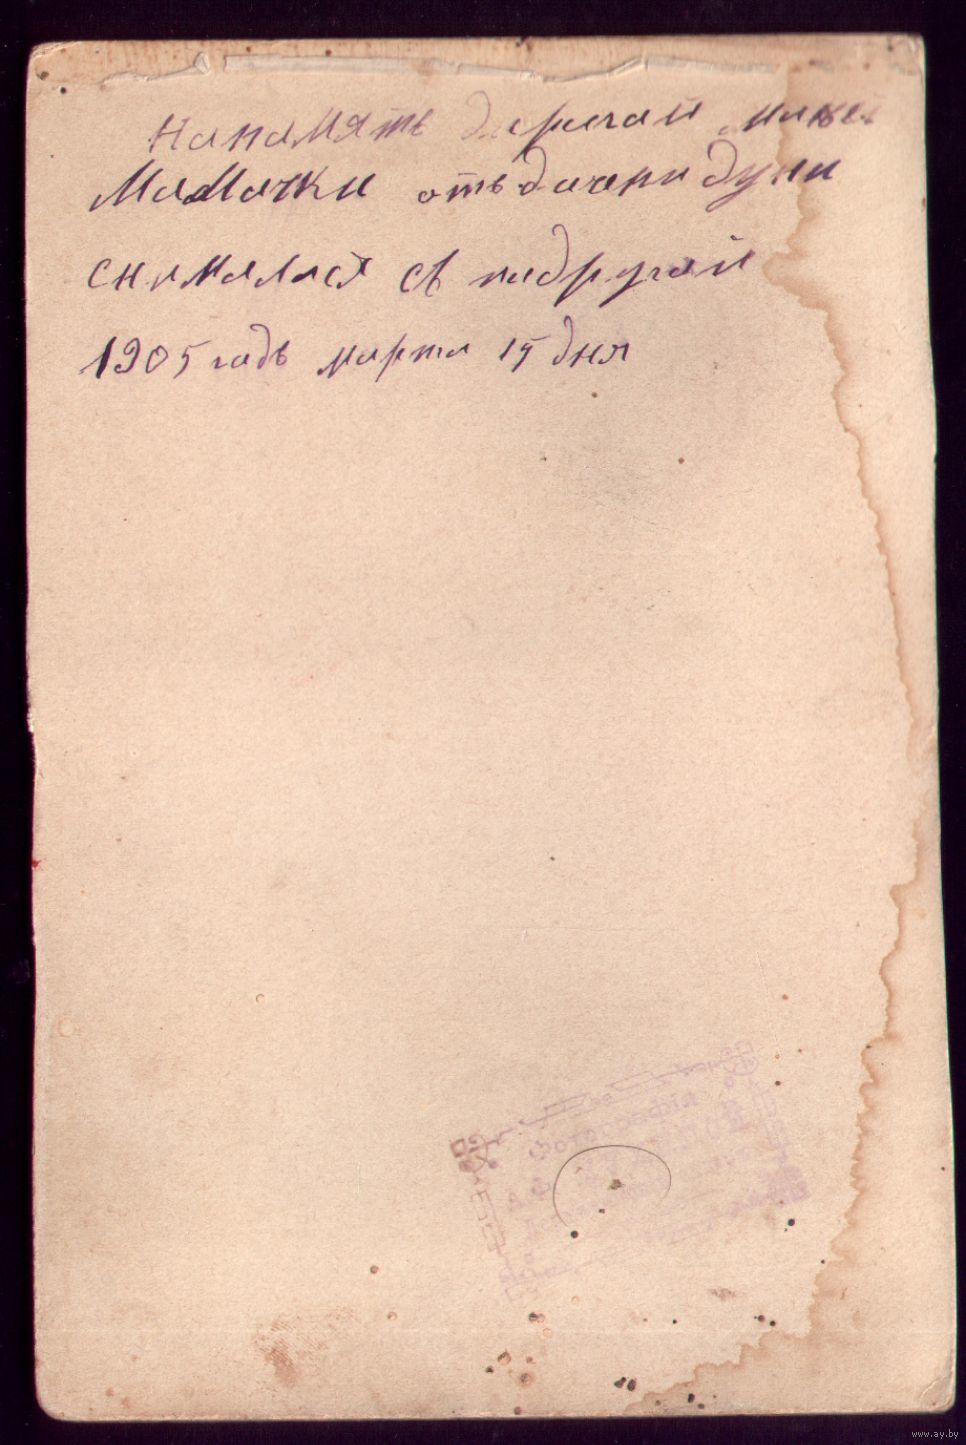 Напамять дарагай милай
Мамачки отъ дочери Дуни
снималася съ подругай
1905 годъ марта 15 дня
Фотографія
www.ay.by